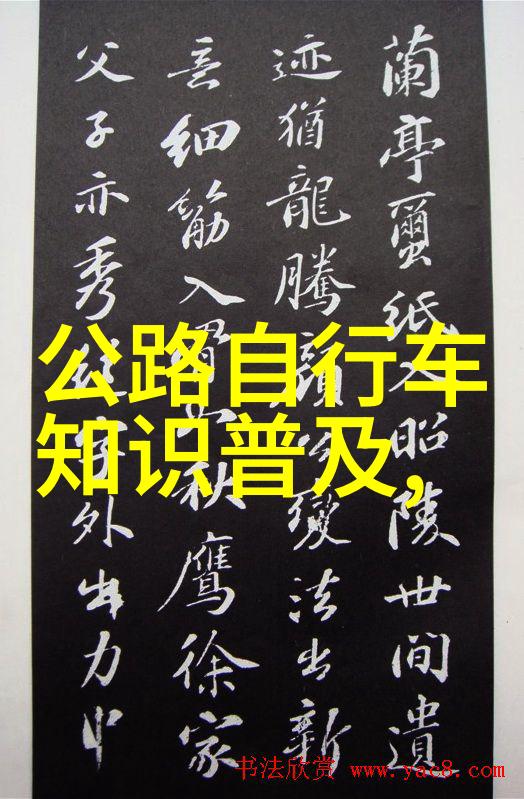 蘭亭蠒紙入昭陵世間遺
迹猶龍騰顏公變法出新
意細筋入骨如秋鷹徐家
父子亦秀絕字外出力中
公路自行车
知识普及,
书法欣赏 www.yac8.com